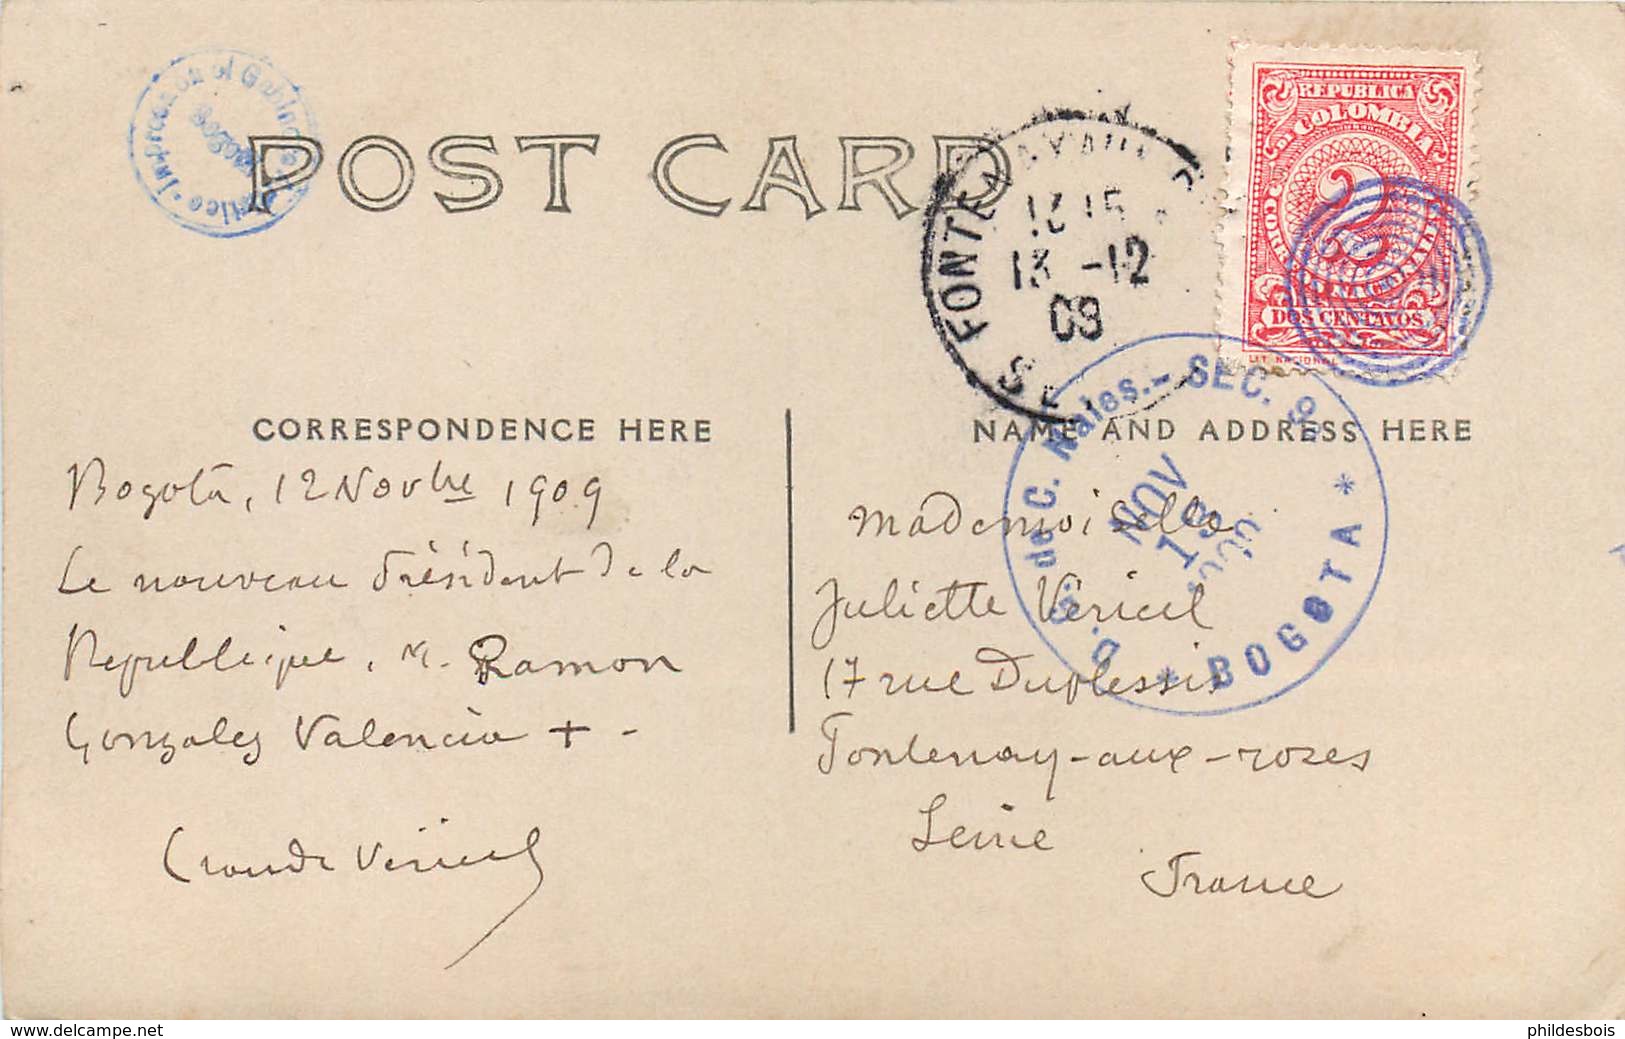 POST CARD
REPUBLICA
DE COLOMBIA
CORREO NACIONAL
2
DOS CENTAVOS
LIT. NACIONAL
FONTENAY AUX
13 -12
09
D. G. de C. Nales. - SEC. 9ª
NOV
* BOGOTA *
BOGOTA
CORRESPONDENCE HERE
Bogotá, 12 Novbre 1909
Le nouveau Président de la
Republique, M. Ramon
Gonzalez Valencia + -
Claude Véricel
NAME AND ADDRESS HERE
Mademoiselle
Juliette Véricel
17 rue Duplessis
Fontenay-aux-roses
Seine
France
www.delcampe.net
phildesbois